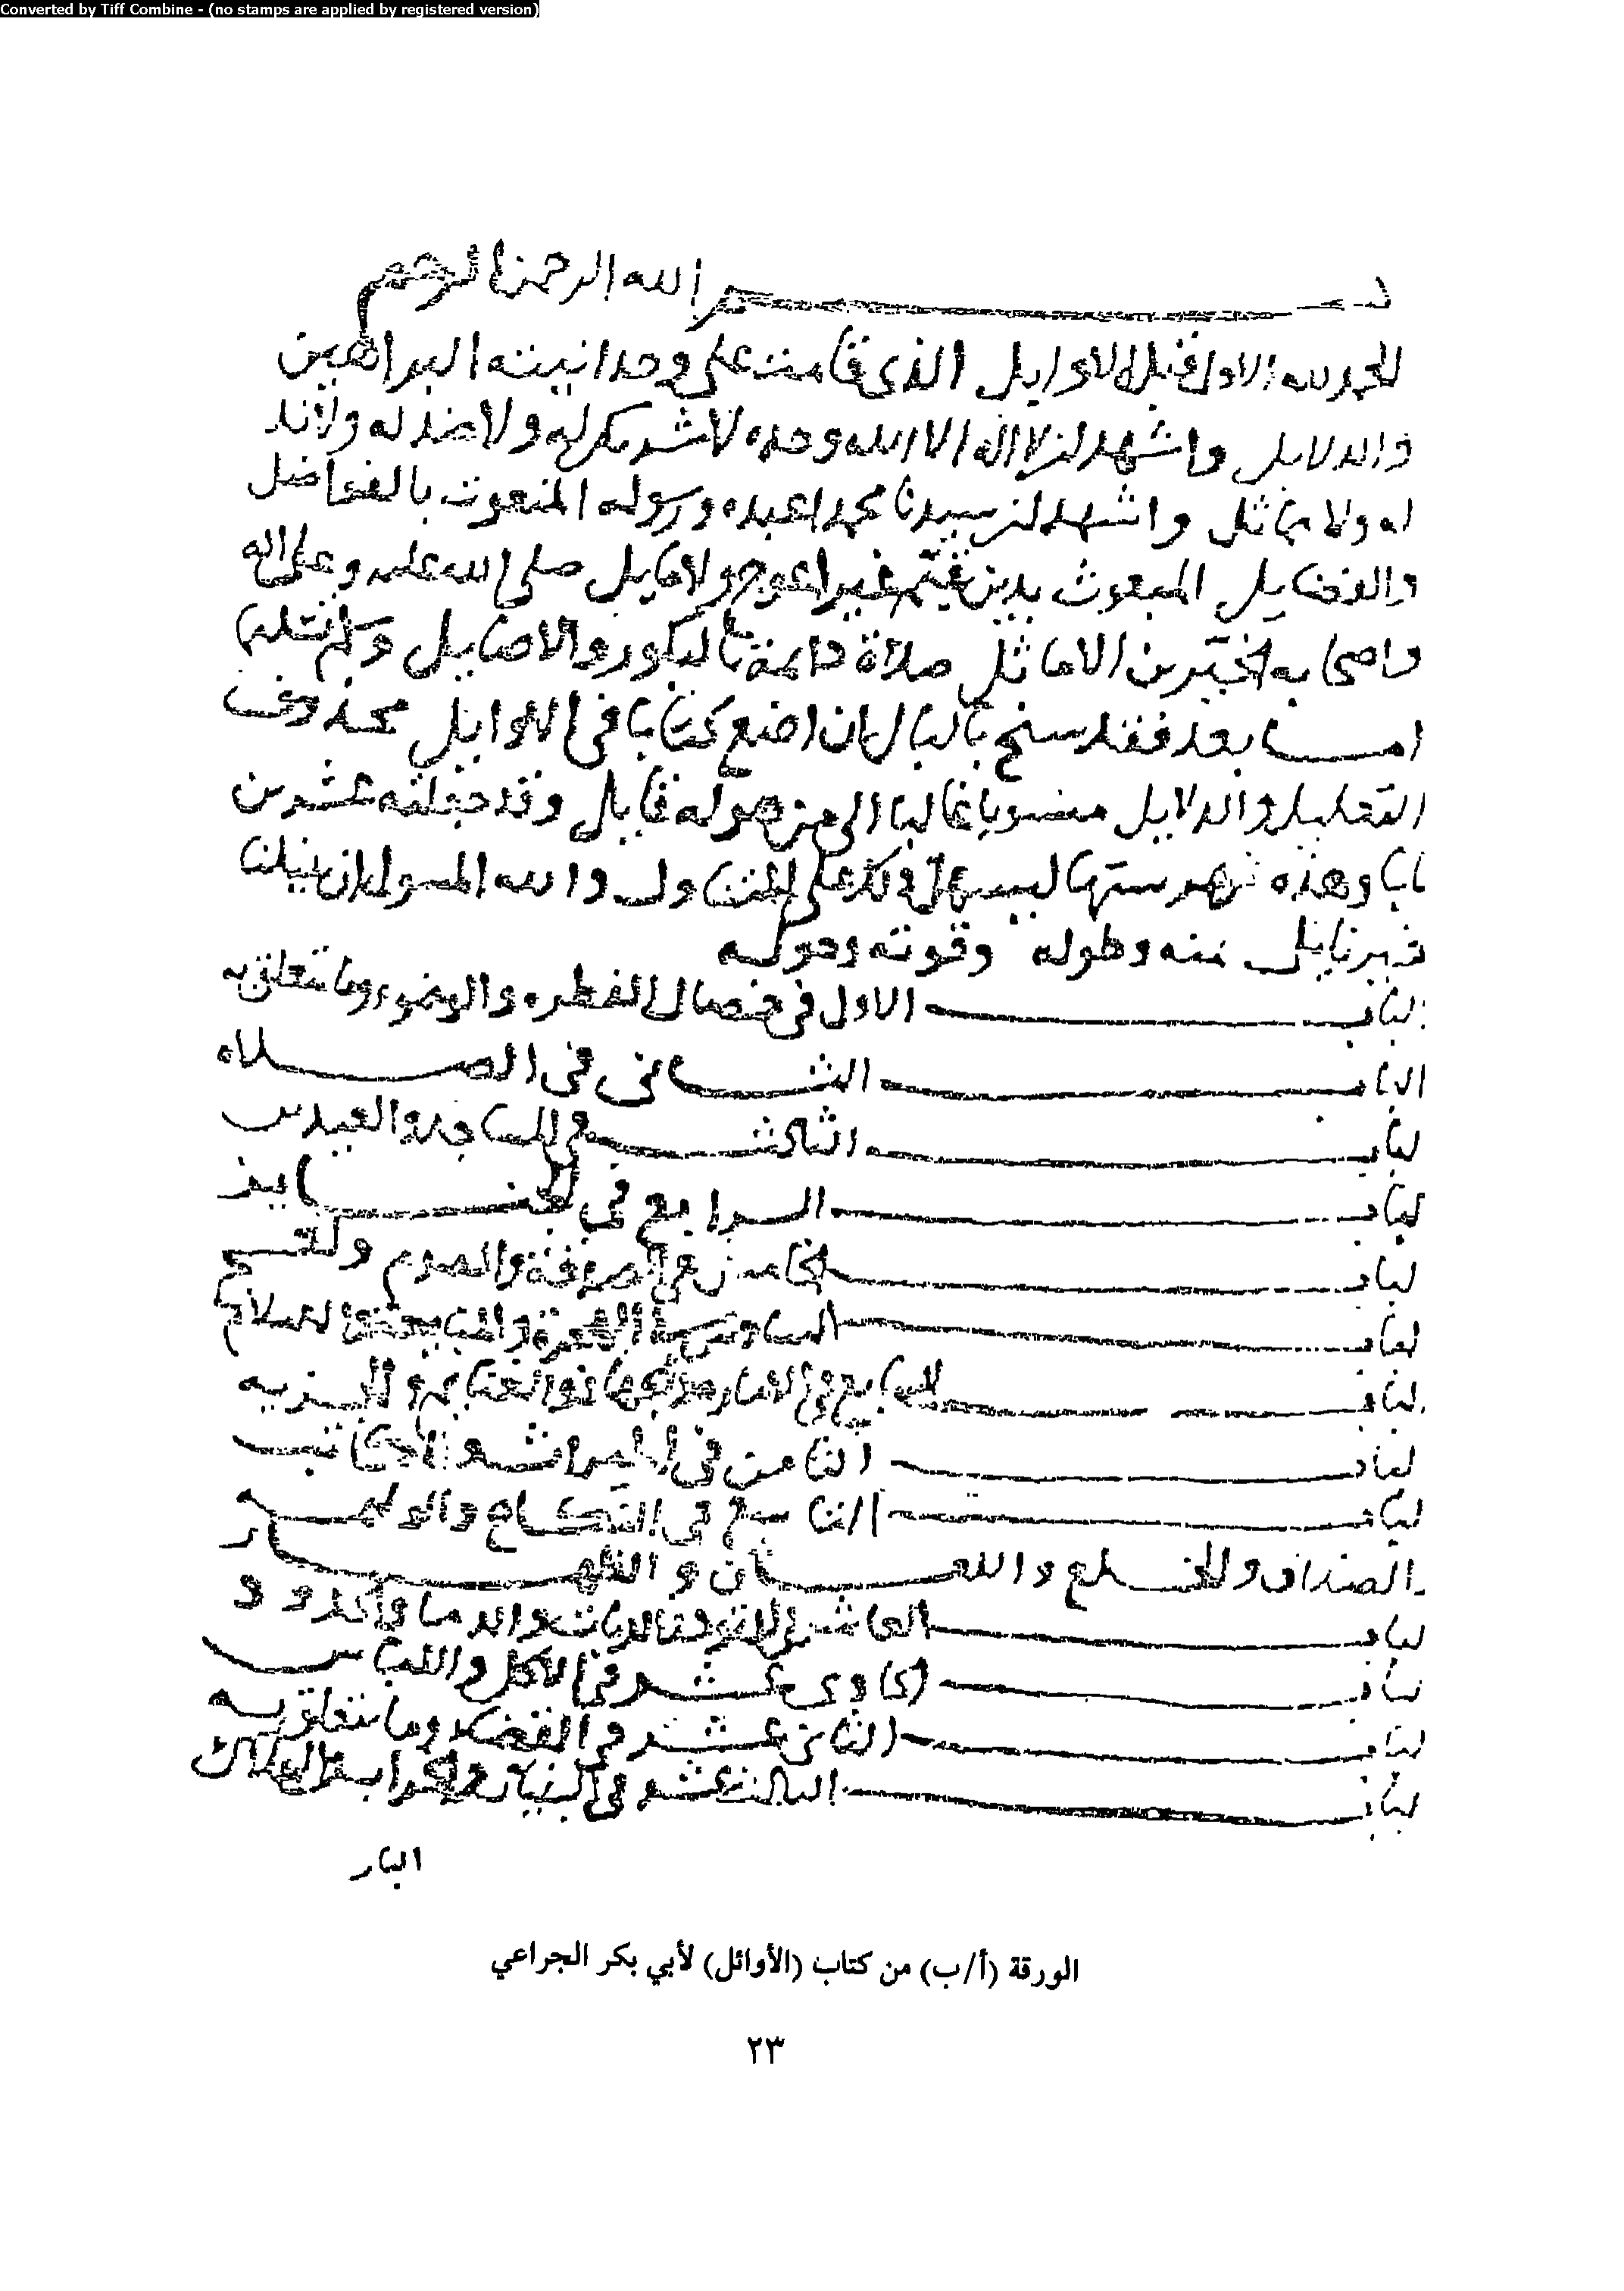 Converted by Tiff Combine - (no stamps are applied by registered version)
بسم الله الرحمن الرحيم
الحمد لله الاول قبل الاوايل الذى قامت على وحدانيته البراهين
والدلايل واشهد ان لا اله الا الله وحده لا شريك له ولا ضد له ولا ند
له ولا مماثل واشهد ان سيدنا محمدا عبده ورسوله المنعوت بالفواضل
والفضايل المبعوث بدين قيم غير اعوج ولا مايل صلى الله عليه وعلى اله
واصحابه الخيرين الاماثل صلاة دائمة بالبكور والاصايل وسلم تسليما
اما بعد فقد سنح بالبال ان اضع كتابا فى الاوايل محذوف
التعليل والدلايل منسوبا غالبا الى من هو له قايل وقد جعلته عشرين
بابا وهذه فهرستها ليسهل ذلك على المتناول والله المسول ان ينيلنا
خير نايل بمنه وطوله وقوته وحوله
الباب الاول فى خصال الفطره والوضوء وما يتعلق به
الباب الثانى فى الصلاه
الباب الثالث فى المساجد والعيدين
الباب الرابع فى الجنايز
الباب الخامس فى الصدقة والصوم والحج
الباب السادس
الباب السابع فى والجزيه
الباب الثامن فى الميراث والمكاتب
الباب التاسع فى النكاح والوليمه
الصداق والخلع واللعان والظهار
الباب العاشر والديات والدما والحدود
الباب الحادى عشر فى الاكل واللباس
الباب الثانى عشر فى القضا وما يتعلق به
الباب الثالث عشر فى
الباب
الورقة (أ/ب) من كتاب (الأوائل) لأبي بكر الجراعي
٢٣